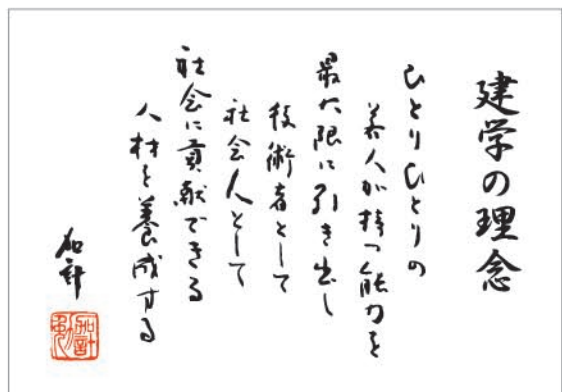 建学の理念
ひとりひとりの
若人が持つ能力を
最大限に引き出し
技術者として
社会人として
社会に貢献できる
人材を養成する
加計